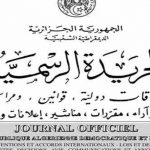 الجمهورية الجزائرية
الديمقراطية الشعبية
الجريدة الرسمية
قات دولية، قوانين، ومراس
مقررات، مناشير، إعلانات و
JOURNAL OFFICIEL
PUBLIQUE ALGERIENNE DEMOCRATIQUE ET
ENTIONS ET ACCORDS INTERNATIONAUX - LOIS ET DE